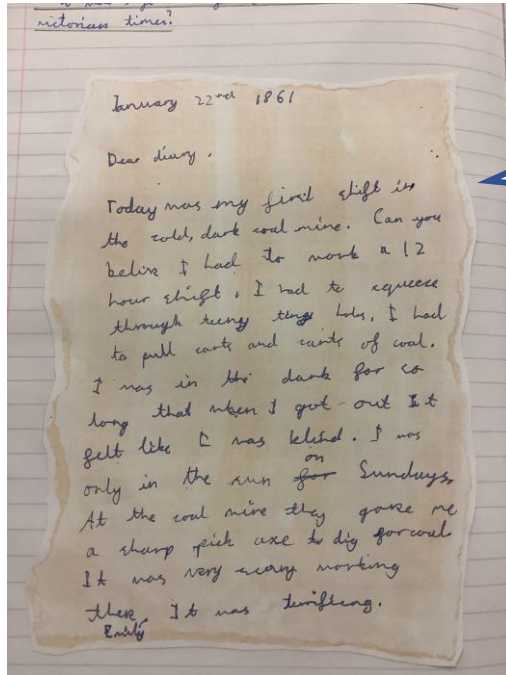 victorian times?
January 22nd 1861
Dear diary.
Today was my first shift in
the cold, dark coal mine. Can you
belive I had to work a 12
hour shift. I had to squeeze
through teeny tiny holes. I had
to pull carts and carts of coal.
I was in the dark for so
long that when I got out It
felt like I was blind. I was
on
only in the sun for Sundays.
At the coal mine they gave me
a sharp pick axe to dig for coal
It was very scary working
there. It was
Emily